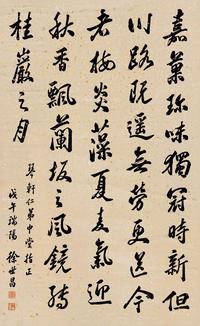 嘉菓珍味獨冠時新但
川路既遥無勞更送今
老梅炎藻夏麦氣迎
秋香飄蘭坂之風鏡轉
桂巖之月
琴軒仁弟中堂指正
戊午端陽 徐世昌